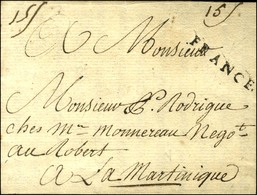 15ſ 15ſ
A Monsieur
FRANCE
Monsieur P. Rodrigue
ches Mr. Monnereau Negot.
au Robert
A La Martinique